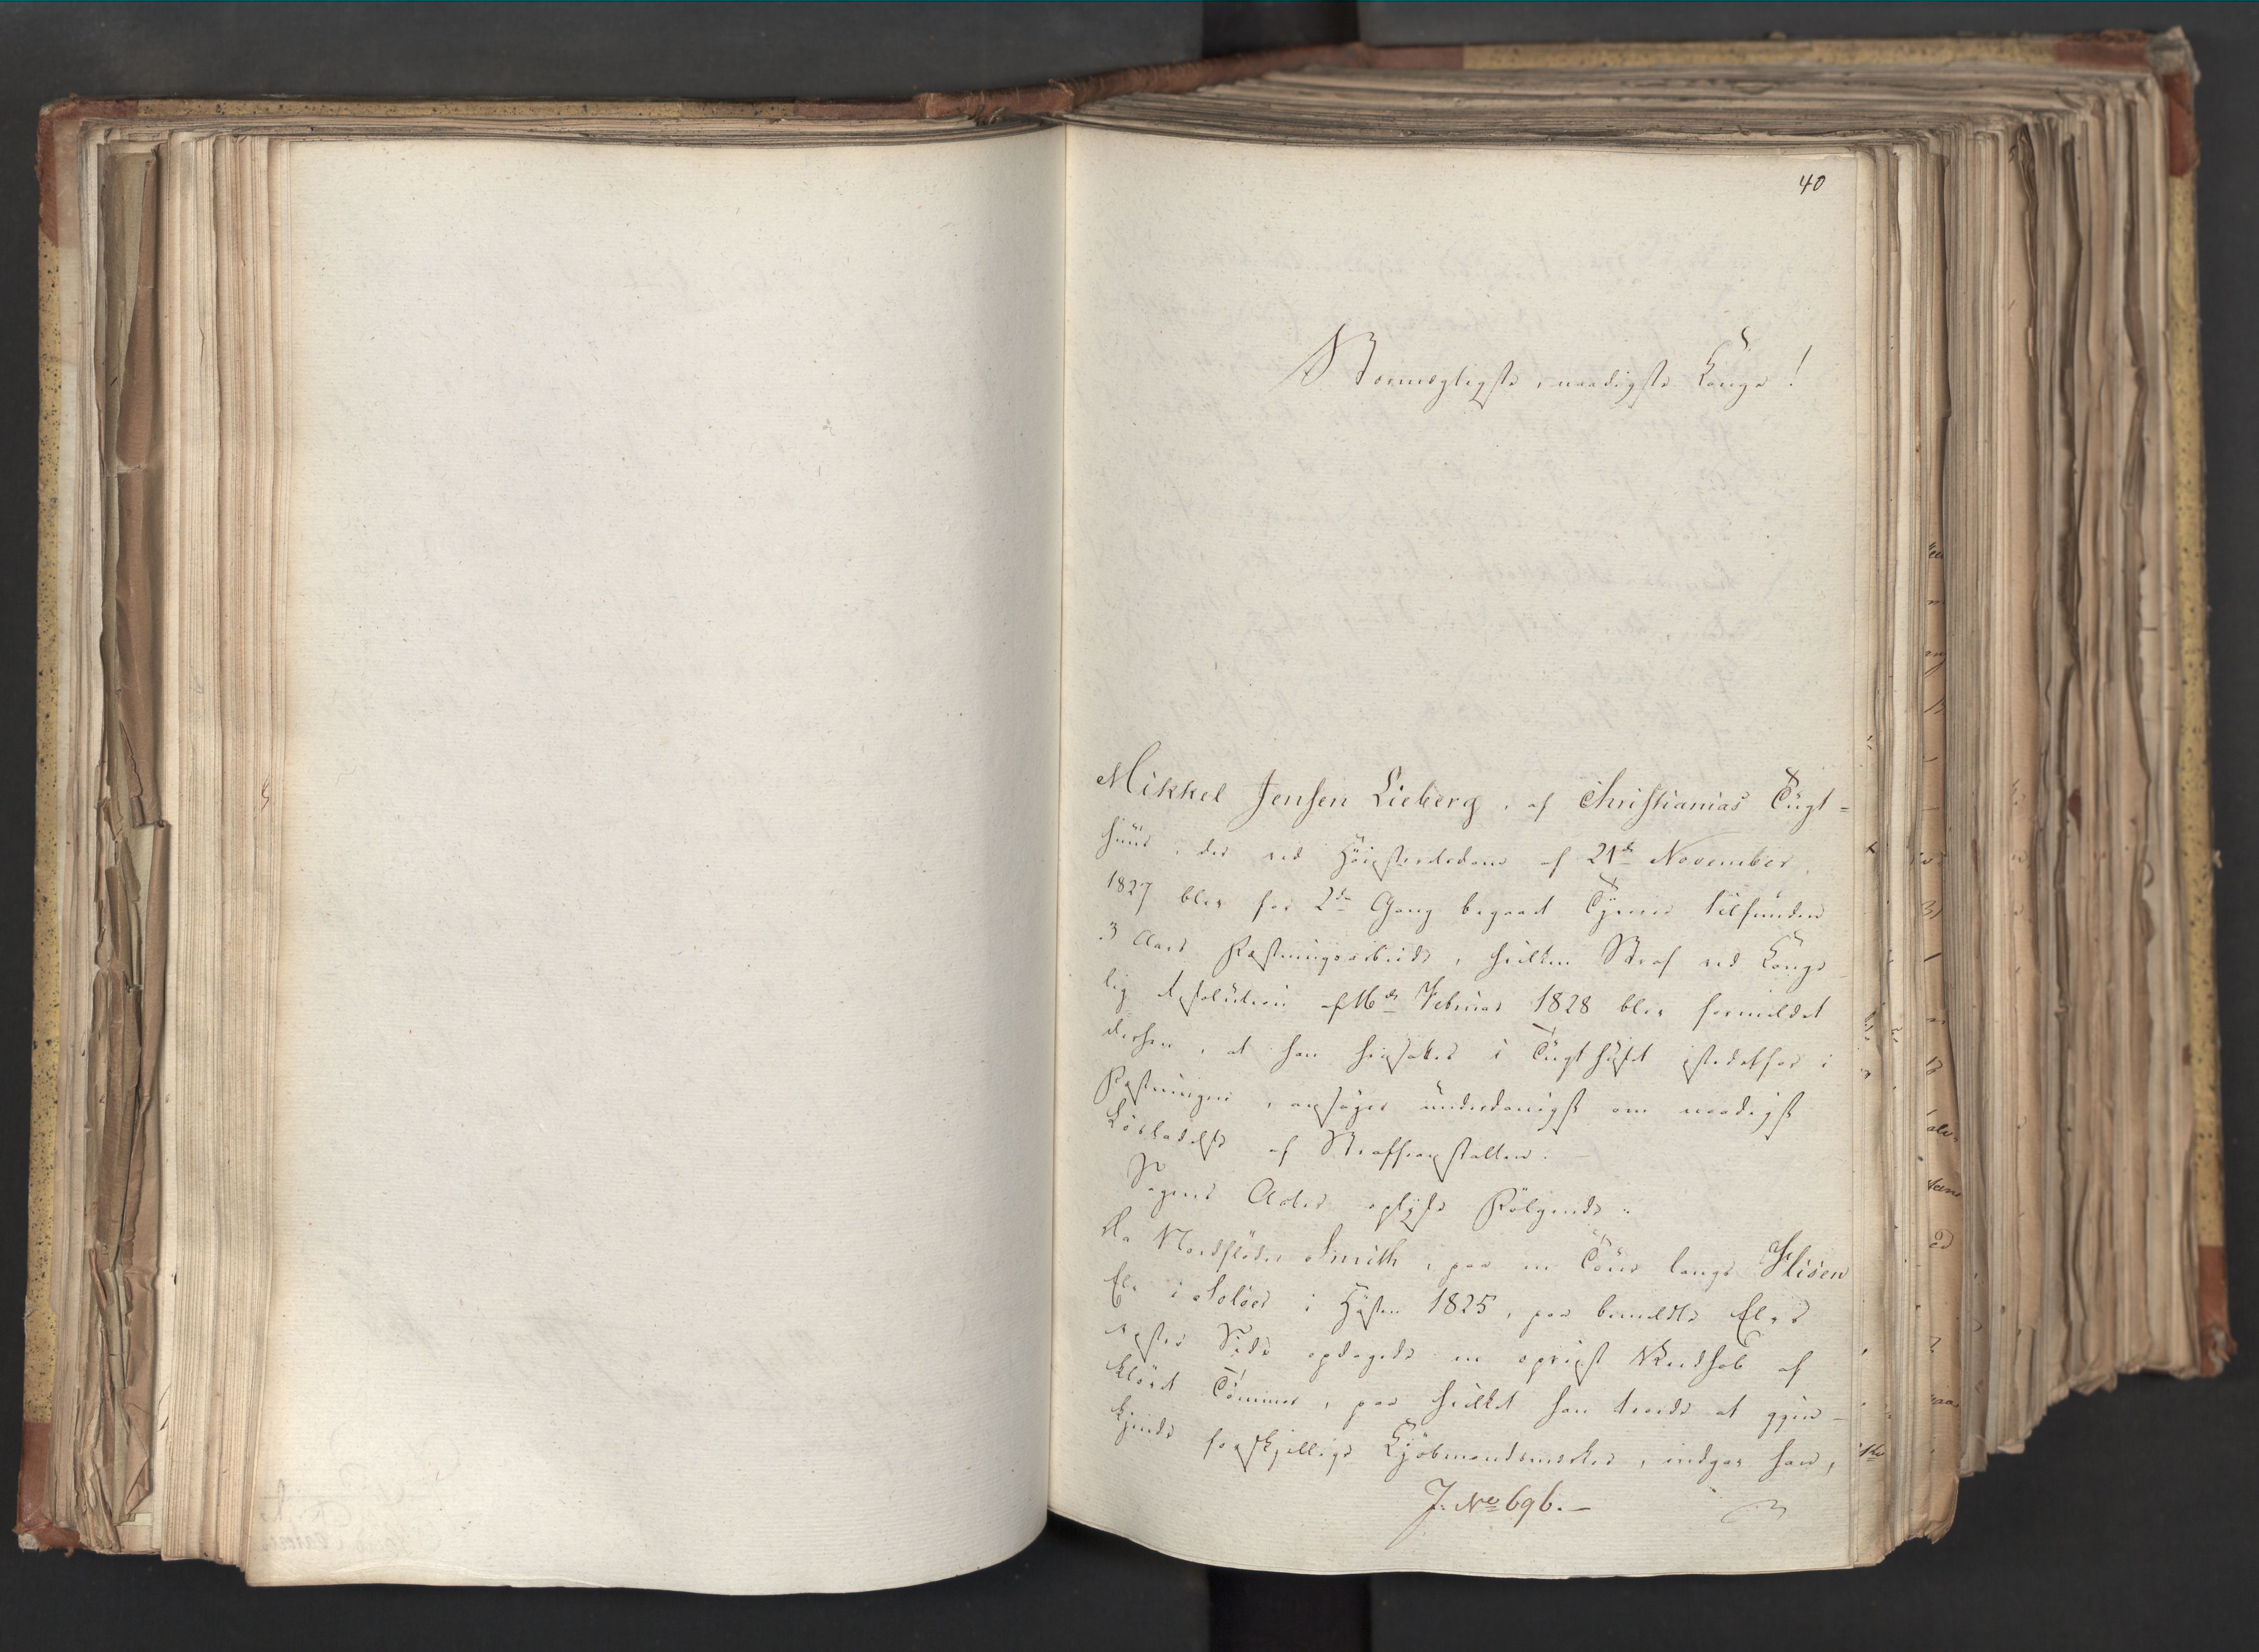 40
Stormægtigste, naadigste Konge!
Mikkel Jensen Lieberg, af Christianias Tugt=
huus, der ved Höiesteretsdom af 21de November
1827 blev for 2den Gang begaaet Tyverie tilfunden
3 Aars Fæstningsarbeide, hvilken Straf ved Konge-
lig Resolution af 16de Februar 1828 blev formildet
derhen, at han hensættes i Tugthuset istedetfor i
Fæstningen, ansøger underdanigst om naadigst
Löskadelse af Straffeanstalten.
Sagens Acter oplyse Fölgende:
Da Flöder Smith, paa en Tour langs Flisen
Elv i Soløer i Høsten 1825, paa bemeldte Elvs
Side opdagede en opreist af
klövet Tömmer, paa hvilket han troede at gjen-
kjende forskjellige Kjöbmandsmærker, indgav han,
J. No 696. –